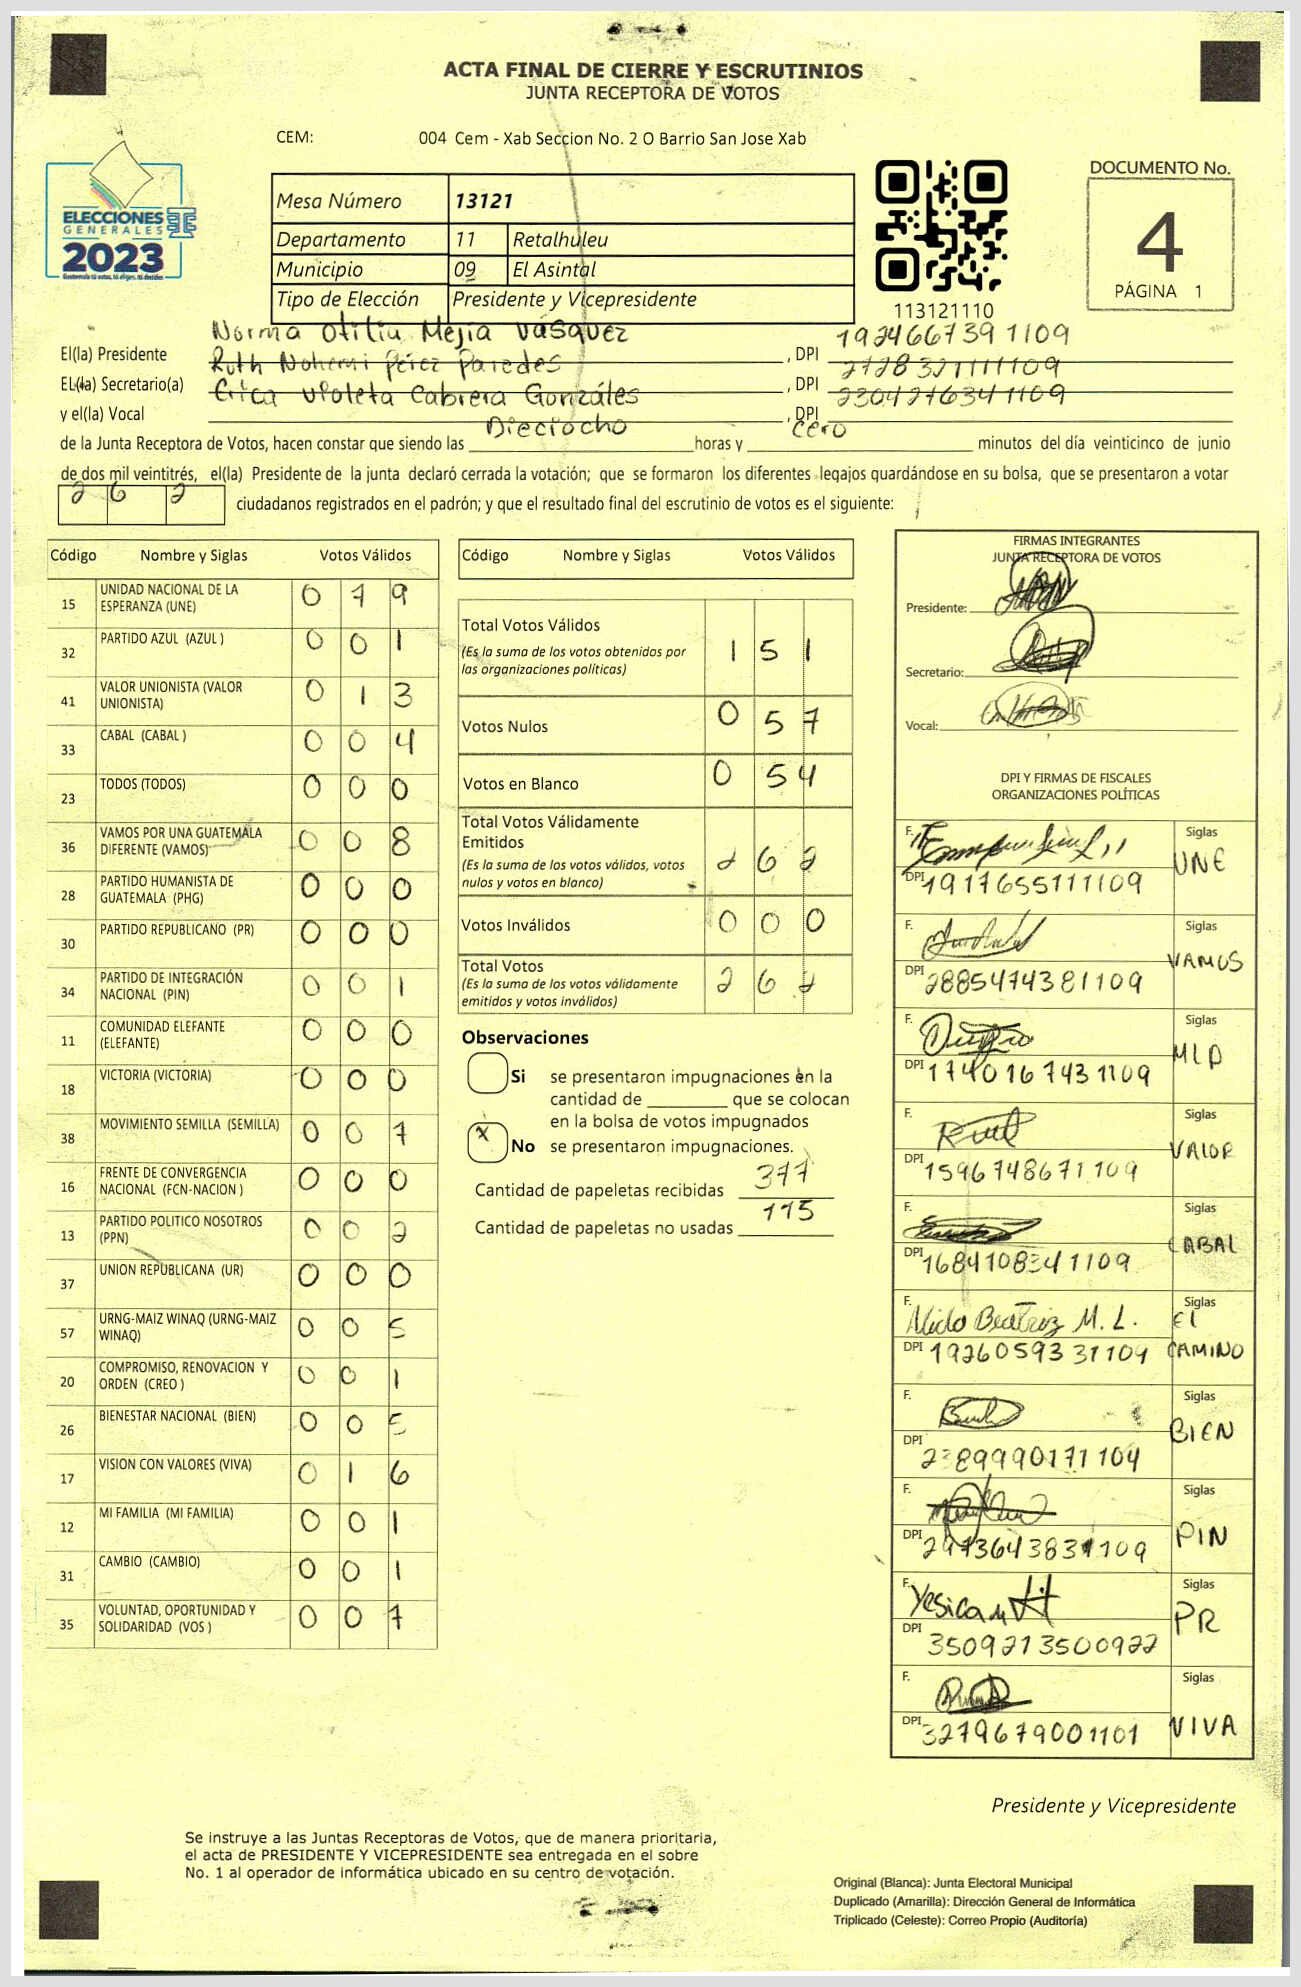 ACTA FINAL DE CIERRE Y ESCRUTINIOS
JUNTA RECEPTORA DE VOTOS
CEM: 004 Cem - Xab Seccion No. 2 O Barrio San Jose Xab
ELECCIONES
GENERALES
2023
Mesa Número 13121
Departamento 11 Retalhuleu
Municipio 09 El Asintal
Tipo de Elección Presidente y Vicepresidente
113121110
DOCUMENTO No.
4
PÁGINA 1
Norma Otilia Mejía Vásquez 1924667391109
El(la) Presidente , DPI
Ruth Nohemi Pérez Paredes
EL(la) Secretario(a) , DPI
Erica Violeta Cabrera Gonzáles 2304276341109
y el(la) Vocal , DPI
de la Junta Receptora de Votos, hacen constar que siendo las Dieciocho horas y cero minutos del día veinticinco de junio
de dos mil veintitrés, el(la) Presidente de la junta declaró cerrada la votación; que se formaron los diferentes legajos quardándose en su bolsa, que se presentaron a votar
262 ciudadanos registrados en el padrón; y que el resultado final del escrutinio de votos es el siguiente:
Código Nombre y Siglas Votos Válidos
15 UNIDAD NACIONAL DE LA ESPERANZA (UNE) 0 7 9
32 PARTIDO AZUL (AZUL ) 0 0 1
41 VALOR UNIONISTA (VALOR UNIONISTA) 0 1 3
33 CABAL (CABAL ) 0 0 4
23 TODOS (TODOS) 0 0 0
36 VAMOS POR UNA GUATEMALA DIFERENTE (VAMOS) 0 0 8
28 PARTIDO HUMANISTA DE GUATEMALA (PHG) 0 0 0
30 PARTIDO REPUBLICANO (PR) 0 0 0
34 PARTIDO DE INTEGRACIÓN NACIONAL (PIN) 0 0 1
11 COMUNIDAD ELEFANTE (ELEFANTE) 0 0 0
18 VICTORIA (VICTORIA) 0 0 0
38 MOVIMIENTO SEMILLA (SEMILLA) 0 0 7
16 FRENTE DE CONVERGENCIA NACIONAL (FCN-NACION ) 0 0 0
13 PARTIDO POLITICO NOSOTROS (PPN) 0 0 2
37 UNION REPUBLICANA (UR) 0 0 0
57 URNG-MAIZ WINAQ (URNG-MAIZ WINAQ) 0 0 5
20 COMPROMISO, RENOVACION Y ORDEN (CREO ) 0 0 1
26 BIENESTAR NACIONAL (BIEN) 0 0 5
17 VISION CON VALORES (VIVA) 0 1 6
12 MI FAMILIA (MI FAMILIA) 0 0 1
31 CAMBIO (CAMBIO) 0 0 1
35 VOLUNTAD, OPORTUNIDAD Y SOLIDARIDAD (VOS ) 0 0 7
Código Nombre y Siglas Votos Válidos
Total Votos Válidos 1 5 1
(Es la suma de los votos obtenidos por
las organizaciones políticas)
Votos Nulos 0 5 7
Votos en Blanco 0 5 4
Total Votos Válidamente
Emitidos 2 6 2
(Es la suma de los votos válidos, votos
nulos y votos en blanco)
Votos Inválidos 0 0 0
Total Votos 2 6 2
(Es la suma de los votos válidamente
emitidos y votos inválidos)
Observaciones
Si se presentaron impugnaciones en la
cantidad de que se colocan
en la bolsa de votos impugnados
x No se presentaron impugnaciones.
Cantidad de papeletas recibidas 377
Cantidad de papeletas no usadas 115
FIRMAS INTEGRANTES
JUNTA RECEPTORA DE VOTOS
Presidente:
Secretario:
Vocal:
DPI Y FIRMAS DE FISCALES
ORGANIZACIONES POLÍTICAS
F. Siglas
DPI 1917655111109 UNE
F. Siglas
DPI 2885474381109 VAMOS
F. Siglas
DPI 1740167431109 MLP
F. Siglas
DPI 1596748671109 VALOR
F. Siglas
DPI 1684108341109 CABAL
F. Beatriz M. L. Siglas
DPI 1926059331109 El CAMINO
F. Siglas
DPI 2389990171104 BIEN
F. Siglas
DPI 2973643831109 PIN
F. Yesica Siglas
DPI 3509213500922 PR
F. Siglas
DPI 3279679001101 VIVA
Presidente y Vicepresidente
Se instruye a las Juntas Receptoras de Votos, que de manera prioritaria,
el acta de PRESIDENTE Y VICEPRESIDENTE sea entregada en el sobre
No. 1 al operador de informática ubicado en su centro de votación.
Original (Blanca): Junta Electoral Municipal
Duplicado (Amarilla): Dirección General de Informática
Triplicado (Celeste): Correo Propio (Auditoría)